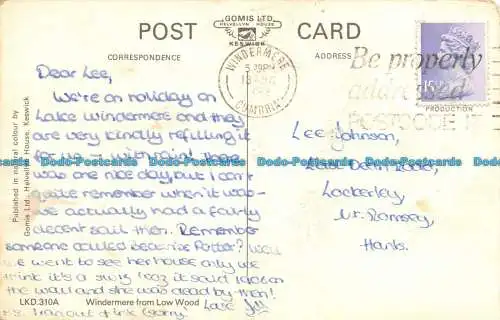 GOMIS LTD
HELVELLYN HOUSE
KESWICK
POST CARD
CORRESPONDENCE
ADDRESS
WINDERMERE
CUMBRIA
Be properly
addressed
POSTCODE IT
PRODUCTION
Dear Lee,
We're on holiday on
Lake Windermere and they
are very kindly refilling it
for us - with rain! There
was one nice day, but I can't
quite remember when it was -
we actually had a fairly
decent sail then. Remember
someone called Beatrix Potter? Well
we went to see her house only we
think it's a swiz 'coz it said 1906 on
the wall and she was dead by then!
Love
P.S. I ran out of ink (sorry)
Lee Johnson,
East Dean Road,
Lockerley,
Nr. Romsey,
Hants.
Published in natural colour by
Gomis Ltd., Helvellyn House, Keswick
LKD.310A Windermere from Low Wood
Dodo-Postcards Dodo-Postcards Dodo-Postcards Dodo-Postcards